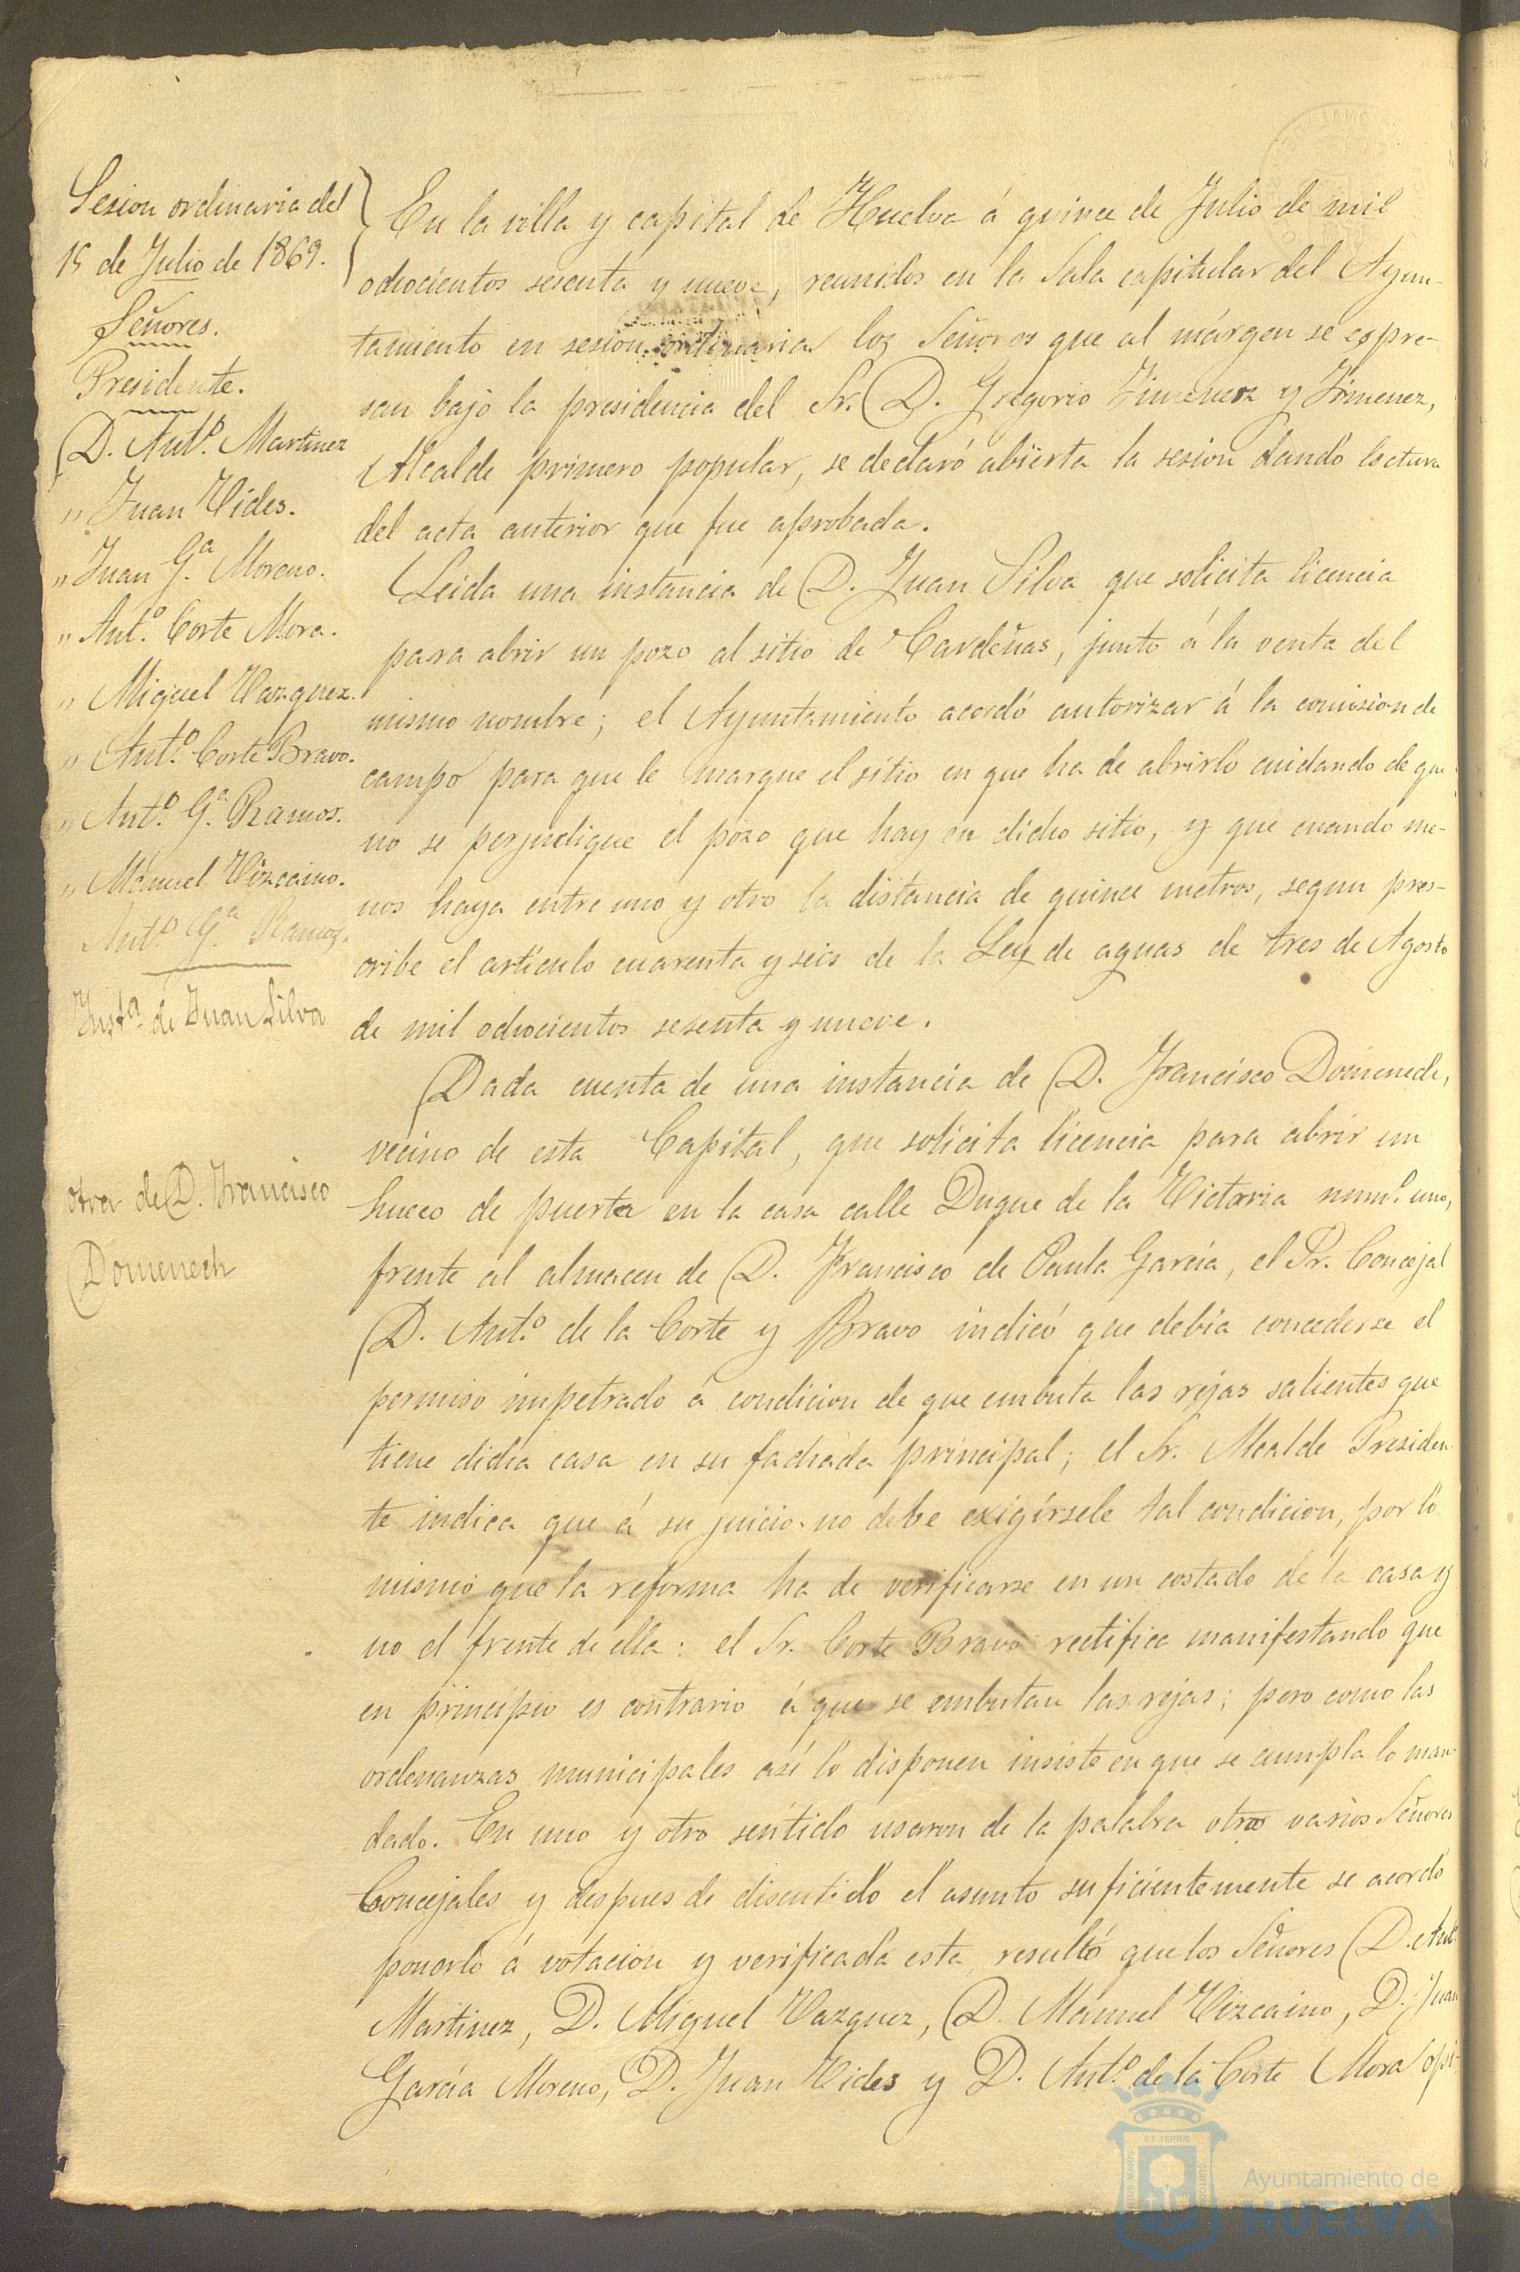 Sesion ordinaria del
15 de Julio de 1869.
Señores.
Presidente.
D. Antº. Martinez
" Juan Vides.
" Juan Gª. Moreno.
" Antº. Corte Mora.
" Miguel Vazquez.
" Antº. Corte Bravo.
" Antº. Gª. Ramos.
" Manuel Vizcaino.
Antº. Gª. Ramos.
Instª. de Juan Silva
otra de D. Francisco
Domenech
En la villa y capital de Huelva á quince de Julio de mil
ochocientos sesenta y nueve, reunidos en la Sala capitular del Ayun-
tamiento en sesion ordinaria los Señores que al márgen se espre-
san bajo la presidencia del Sr. D. Gregorio Jimenez y Jimenez,
Alcalde primero popular, se declaró abierta la sesion dando lectura
del acta anterior que fue aprobada.
Leida una instancia de D. Juan Silva que solicita licencia
para abrir un pozo al sitio de Cardeñas, junto á la venta del
mismo nombre; el Ayuntamiento acordó autorizar á la comision de
campo para que le marque el sitio en que ha de abrirlo cuidando de que
no se perjudique el pozo que hay en dicho sitio, y que cuando me-
nos haya entre uno y otro la distancia de quince metros, segun pres-
cribe el artículo cuarenta y seis de la Ley de aguas de tres de Agosto
de mil ochocientos sesenta y nueve.
Dada cuenta de una instancia de D. Francisco Domenech,
vecino de esta Capital, que solicita licencia para abrir un
hueco de puerta en la casa calle Duque de la Victoria numº. uno,
frente al almacen de D. Francisco de Paula García, el Sr. Concejal
D. Antº. de la Corte y Bravo indicó que debía concederse el
permiso impetrado á condicion de que embuta las rejas salientes que
tiene dicha casa en su fachada principal; el Sr. Alcalde Presiden-
te indica que á su juicio no debe exigírsele tal condicion, por lo
mismo que la reforma ha de verificarse en un costado de la casa y
no el frente de ella: el Sr. Corte Bravo rectifica manifestando que
en principio es contrario á que se embutan las rejas; pero como las
ordenanzas municipales así lo disponen insiste en que se cumpla lo man-
dado. En uno y otro sentido usaron de la palabra otros varios Señores
Concejales y despues de discutido el asunto suficientemente se acordó
ponerlo á votacion y verificada esta resultó que los Señores D. Antº.
Martinez, D. Miguel Vazquez, D. Manuel Vizcaino, D. Juan
García Moreno, D. Juan Vides y D. Antº. de la Corte Mora opi-
Ayuntamiento de
HUELVA